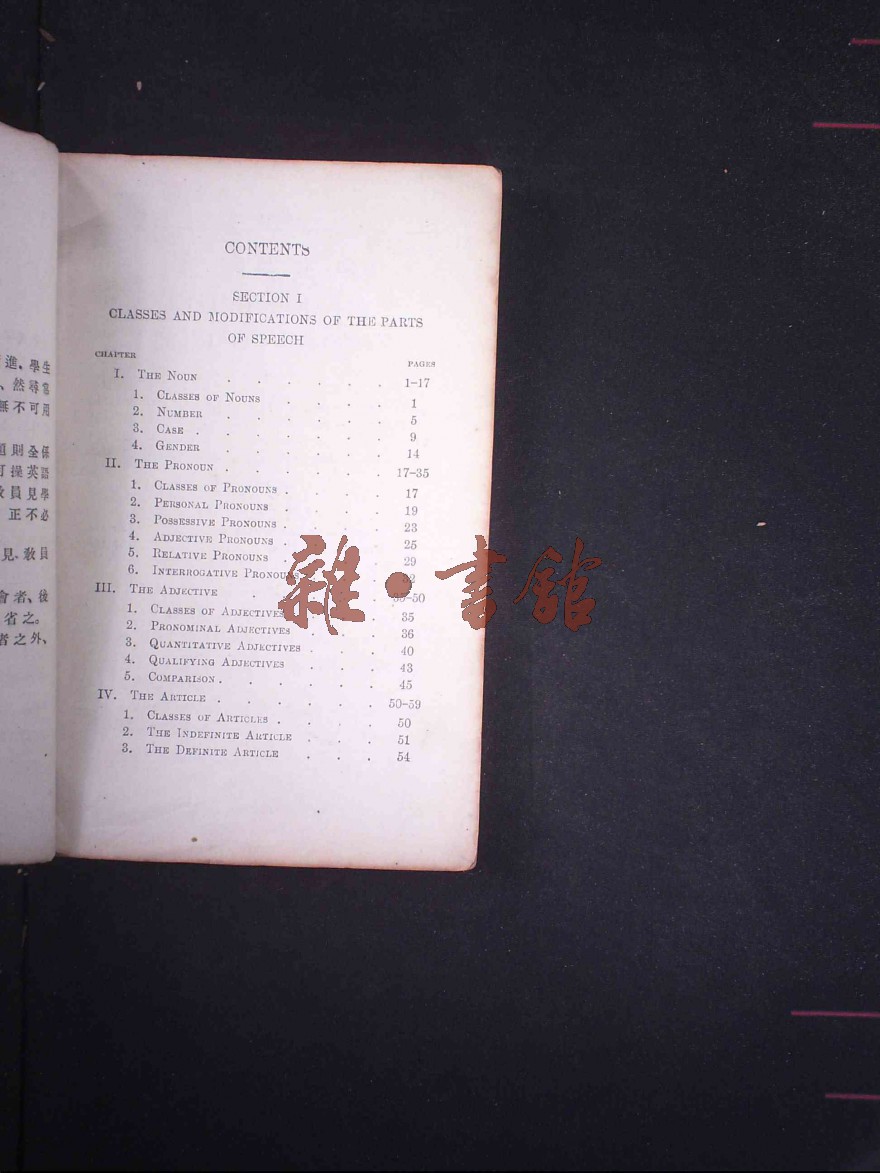 進、學生
、然尋常
無不可用
則全係
可操英語
教員見學
正不必
見、教員
會者、後
省之。
者之外、
CONTENTS
SECTION I
CLASSES AND MODIFICATIONS OF THE PARTS
OF SPEECH
CHAPTER PAGES
I. THE NOUN . . . . . 1–17
1. CLASSES OF NOUNS . . . . 1
2. NUMBER . . . . . 5
3. CASE . . . . . . 9
4. GENDER . . . . . 14
II. THE PRONOUN . . . . . 17–35
1. CLASSES OF PRONOUNS . . . . 17
2. PERSONAL PRONOUNS . . . . 19
3. POSSESSIVE PRONOUNS . . . . 23
4. ADJECTIVE PRONOUNS . . . . 25
5. RELATIVE PRONOUNS . . . . 29
6. INTERROGATIVE PRONOUNS
III. THE ADJECTIVE
1. CLASSES OF ADJECTIVES . . . 35
2. PRONOMINAL ADJECTIVES . . . 36
3. QUANTITATIVE ADJECTIVES . . . 40
4. QUALIFYING ADJECTIVES . . . 43
5. COMPARISON . . . . . 45
IV. THE ARTICLE . . . . . . 50–59
1. CLASSES OF ARTICLES . . . . 50
2. THE INDEFINITE ARTICLE . . . 51
3. THE DEFINITE ARTICLE . . . 54
雜·書館